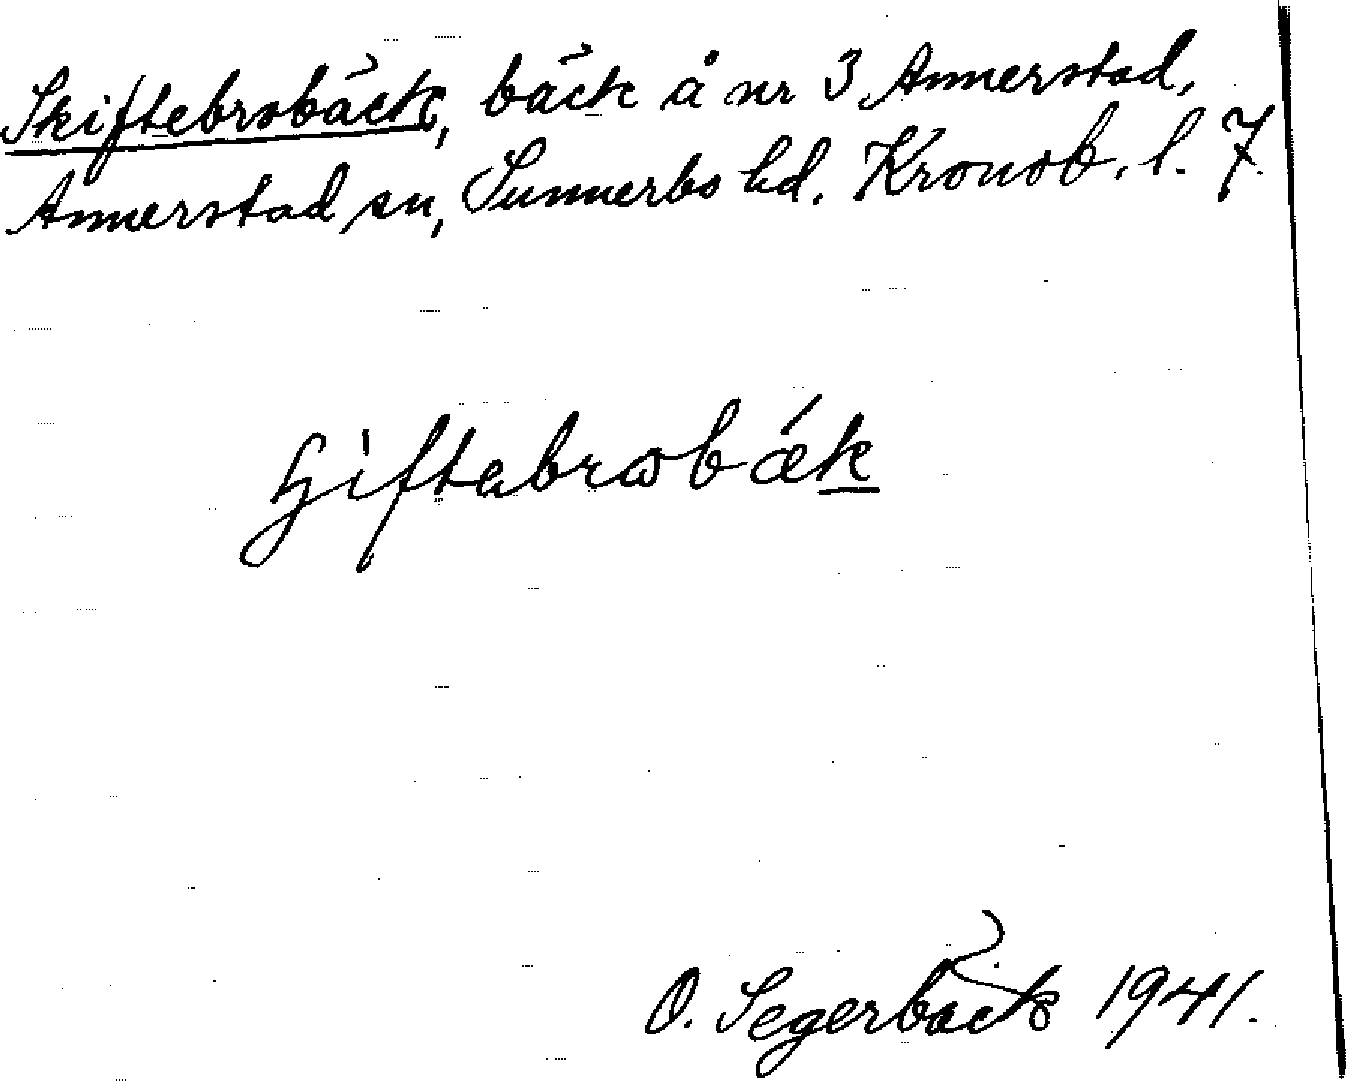 Skiftebrobäck, bäck å nr 3 Annerstad,
Annerstad sn, Sunnerbo hd. Kronob. l. 7.
O. Segerbäck 1941.